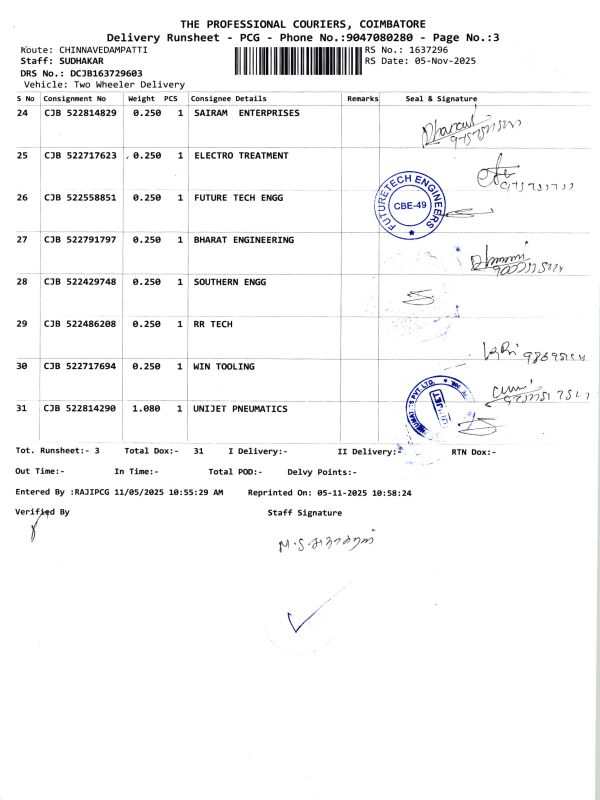 THE PROFESSIONAL COURIERS, COIMBATORE
Delivery Runsheet - PCG - Phone No.:9047080280 - Page No.:3
Route: CHINNAVEDAMPATTI RS No.: 1637296
Staff: SUDHAKAR RS Date: 05-Nov-2025
DRS No.: DCJB163729603
Vehicle: Two Wheeler Delivery
S No Consignment No Weight PCS Consignee Details Remarks Seal & Signature
24 CJB 522814829 0.250 1 SAIRAM ENTERPRISES
25 CJB 522717623 0.250 1 ELECTRO TREATMENT
26 CJB 522558851 0.250 1 FUTURE TECH ENGG
FUTURETECH ENGINEERS
CBE-49
27 CJB 522791797 0.250 1 BHARAT ENGINEERING
28 CJB 522429748 0.250 1 SOUTHERN ENGG
29 CJB 522486208 0.250 1 RR TECH
30 CJB 522717694 0.250 1 WIN TOOLING
31 CJB 522814290 1.080 1 UNIJET PNEUMATICS
Tot. Runsheet:- 3 Total Dox:- 31 I Delivery:- II Delivery: RTN Dox:-
Out Time:- In Time:- Total POD:- Delvy Points:-
Entered By :RAJIPCG 11/05/2025 10:55:29 AM Reprinted On: 05-11-2025 10:58:24
Verified By Staff Signature